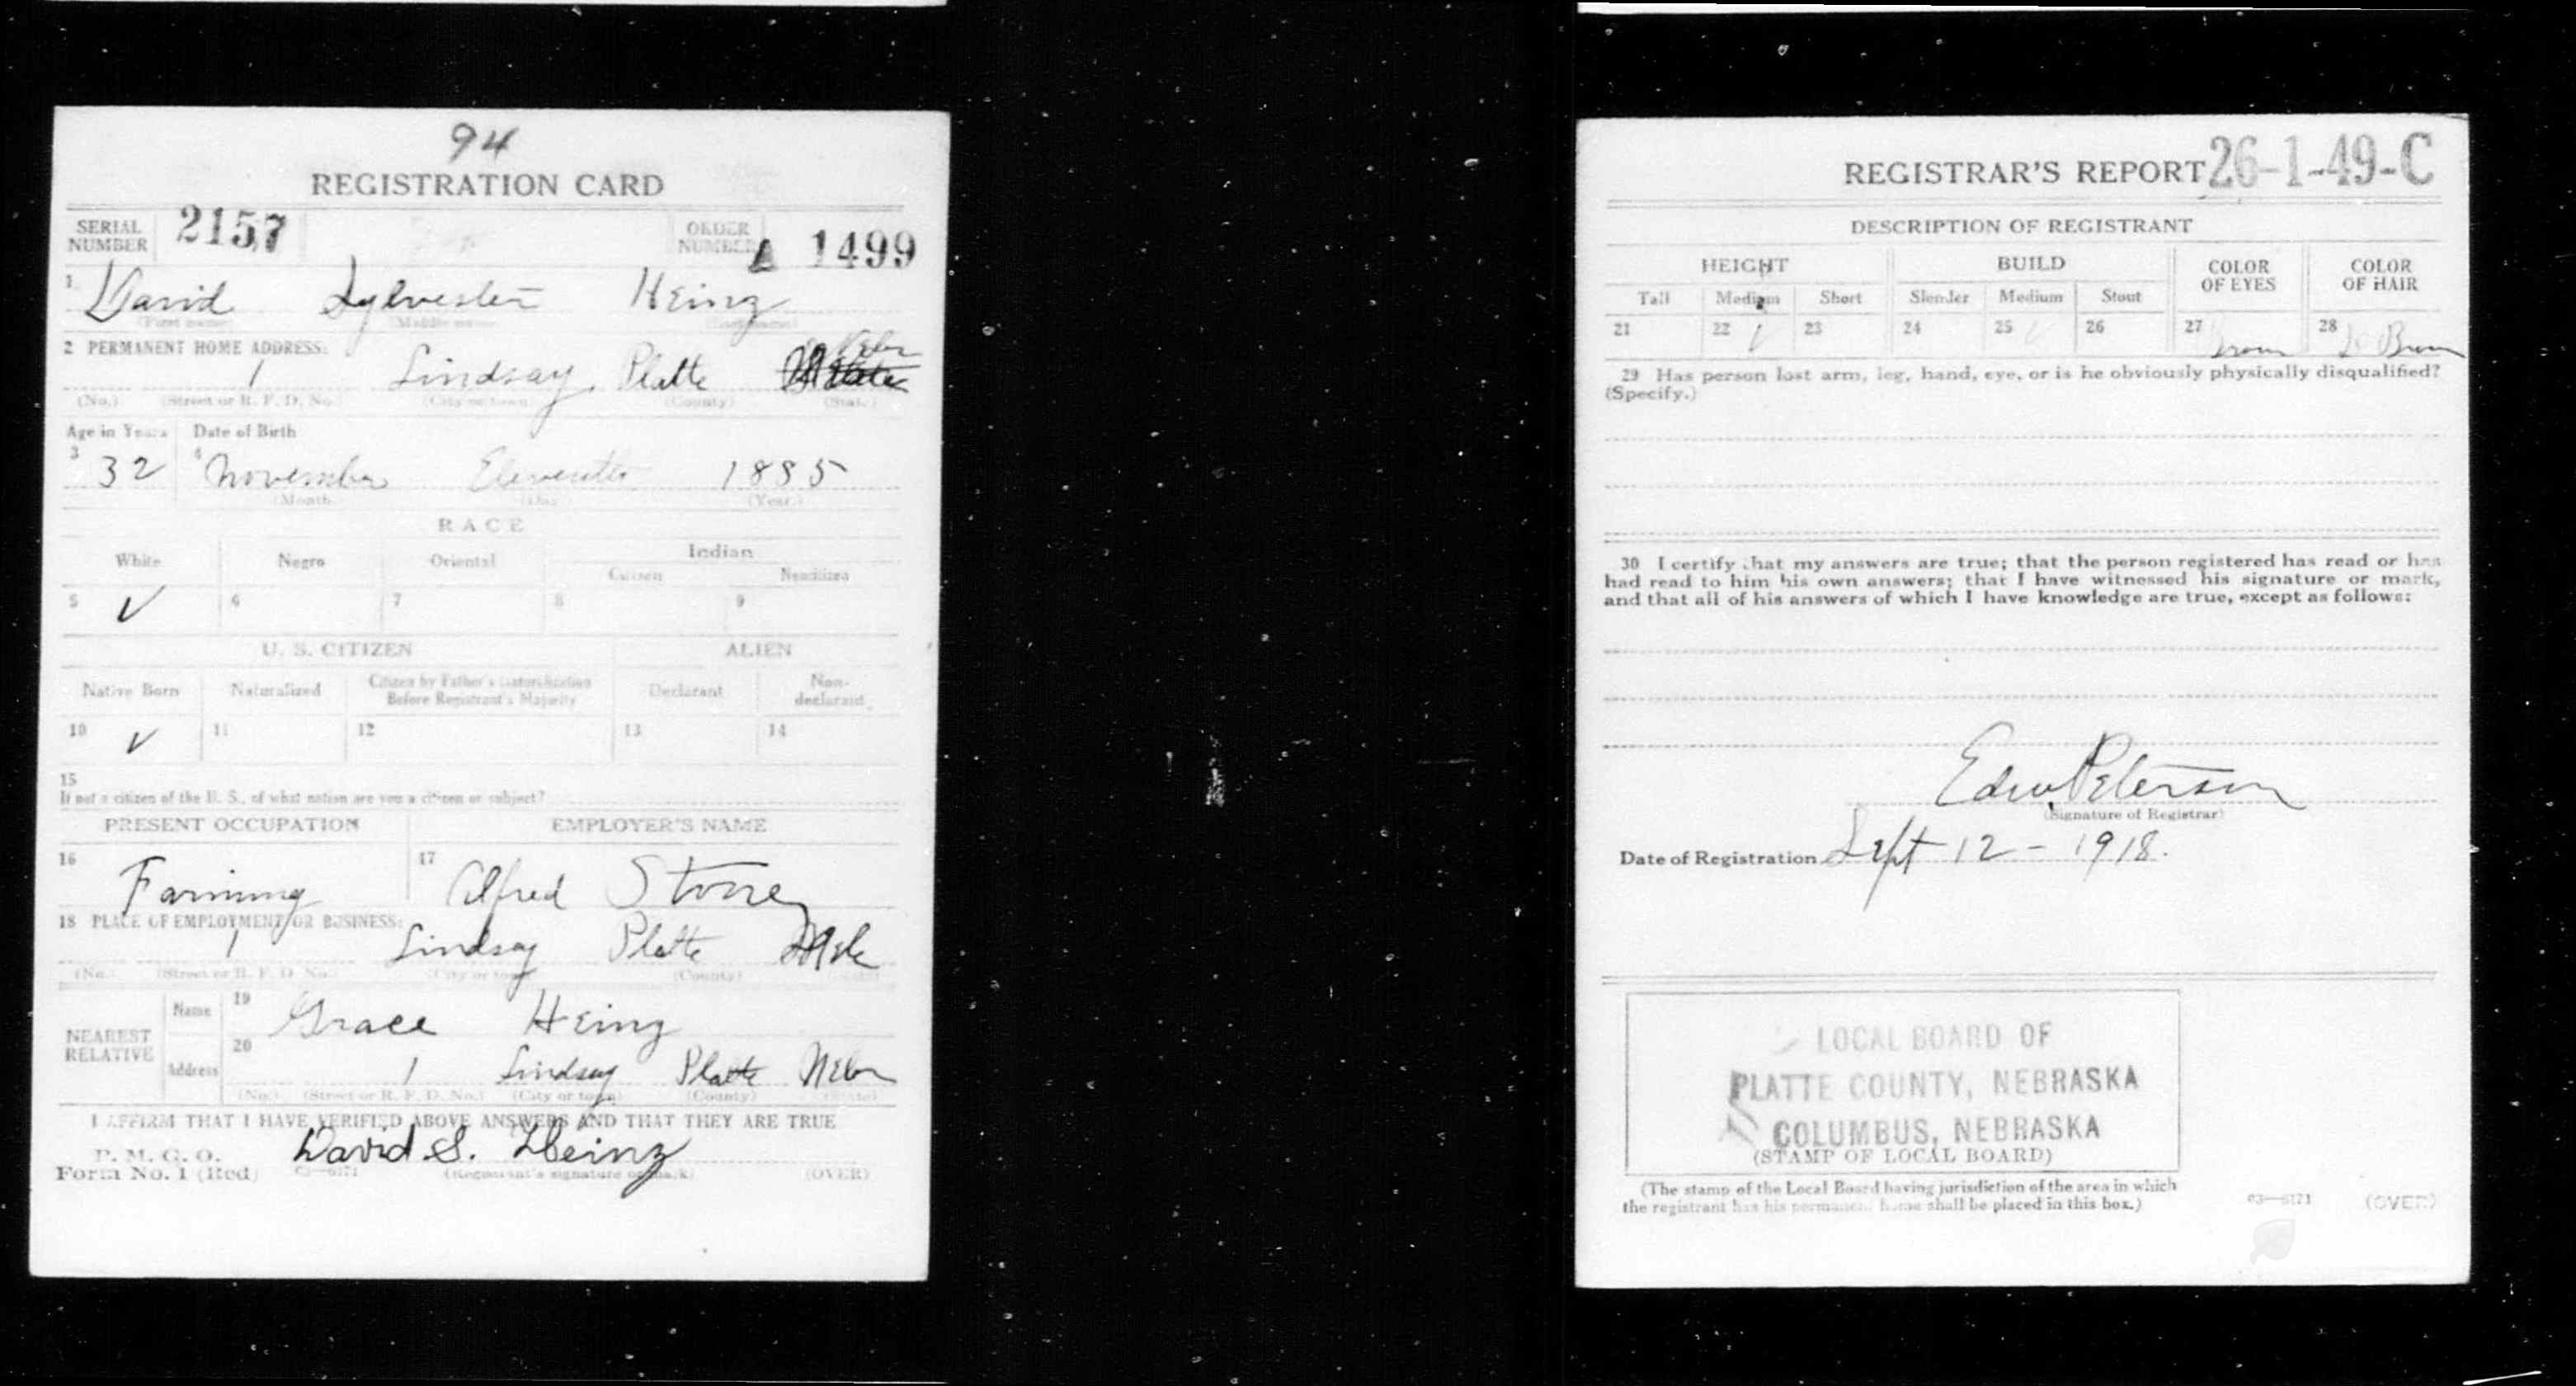 94
REGISTRATION CARD
SERIAL NUMBER 2157 ORDER NUMBER A 1499
1 David Sylvester Heinz
(First name) (Middle name) (Last name)
2 PERMANENT HOME ADDRESS:
1 Lindsay Platte Nebr
(No.) (Street or R. F. D. No.) (City or town) (County) (State)
Age in Years Date of Birth
3 32 4 November Eleventh 1885
(Month) (Day) (Year)
RACE
White Negro Oriental Indian
Citizen Noncitizen
5 ✓ 6 7 8 9
U. S. CITIZEN ALIEN
Native Born Naturalized Citizen by Father's Naturalization Before Registrant's Majority Declarant Non-declarant
10 ✓ 11 12 13 14
15
If not a citizen of the U. S., of what nation are you a citizen or subject?
PRESENT OCCUPATION EMPLOYER'S NAME
16 Farming 17 Alfred Stone
18 PLACE OF EMPLOYMENT OR BUSINESS:
1 Lindsay Platte
(No.) (Street or R. F. D. No.) (City or town) (County) (State)
NEAREST RELATIVE
Name 19 Grace Heinz
Address 20 1 Lindsay Platte Nebr
(No.) (Street or R. F. D. No.) (City or town) (County) (State)
I AFFIRM THAT I HAVE VERIFIED ABOVE ANSWERS AND THAT THEY ARE TRUE
P. M. G. O.
Form No. 1 (Red) 03—6171 David S. Heinz
(Registrant's signature or mark) (OVER)
REGISTRAR'S REPORT 26-1-49-C
DESCRIPTION OF REGISTRANT
HEIGHT BUILD COLOR OF EYES COLOR OF HAIR
Tall Medium Short Slender Medium Stout
21 22 ✓ 23 24 25 ✓ 26 27 Brown 28 Brown
29 Has person lost arm, leg, hand, eye, or is he obviously physically disqualified?
(Specify.)
30 I certify that my answers are true; that the person registered has read or has
had read to him his own answers; that I have witnessed his signature or mark,
and that all of his answers of which I have knowledge are true, except as follows:
Edw. Peterson
(Signature of Registrar)
Date of Registration Sept 12 - 1918.
LOCAL BOARD OF
PLATTE COUNTY, NEBRASKA
COLUMBUS, NEBRASKA
(STAMP OF LOCAL BOARD)
(The stamp of the Local Board having jurisdiction of the area in which
the registrant has his permanent home shall be placed in this box.)
03—6171 (OVER)